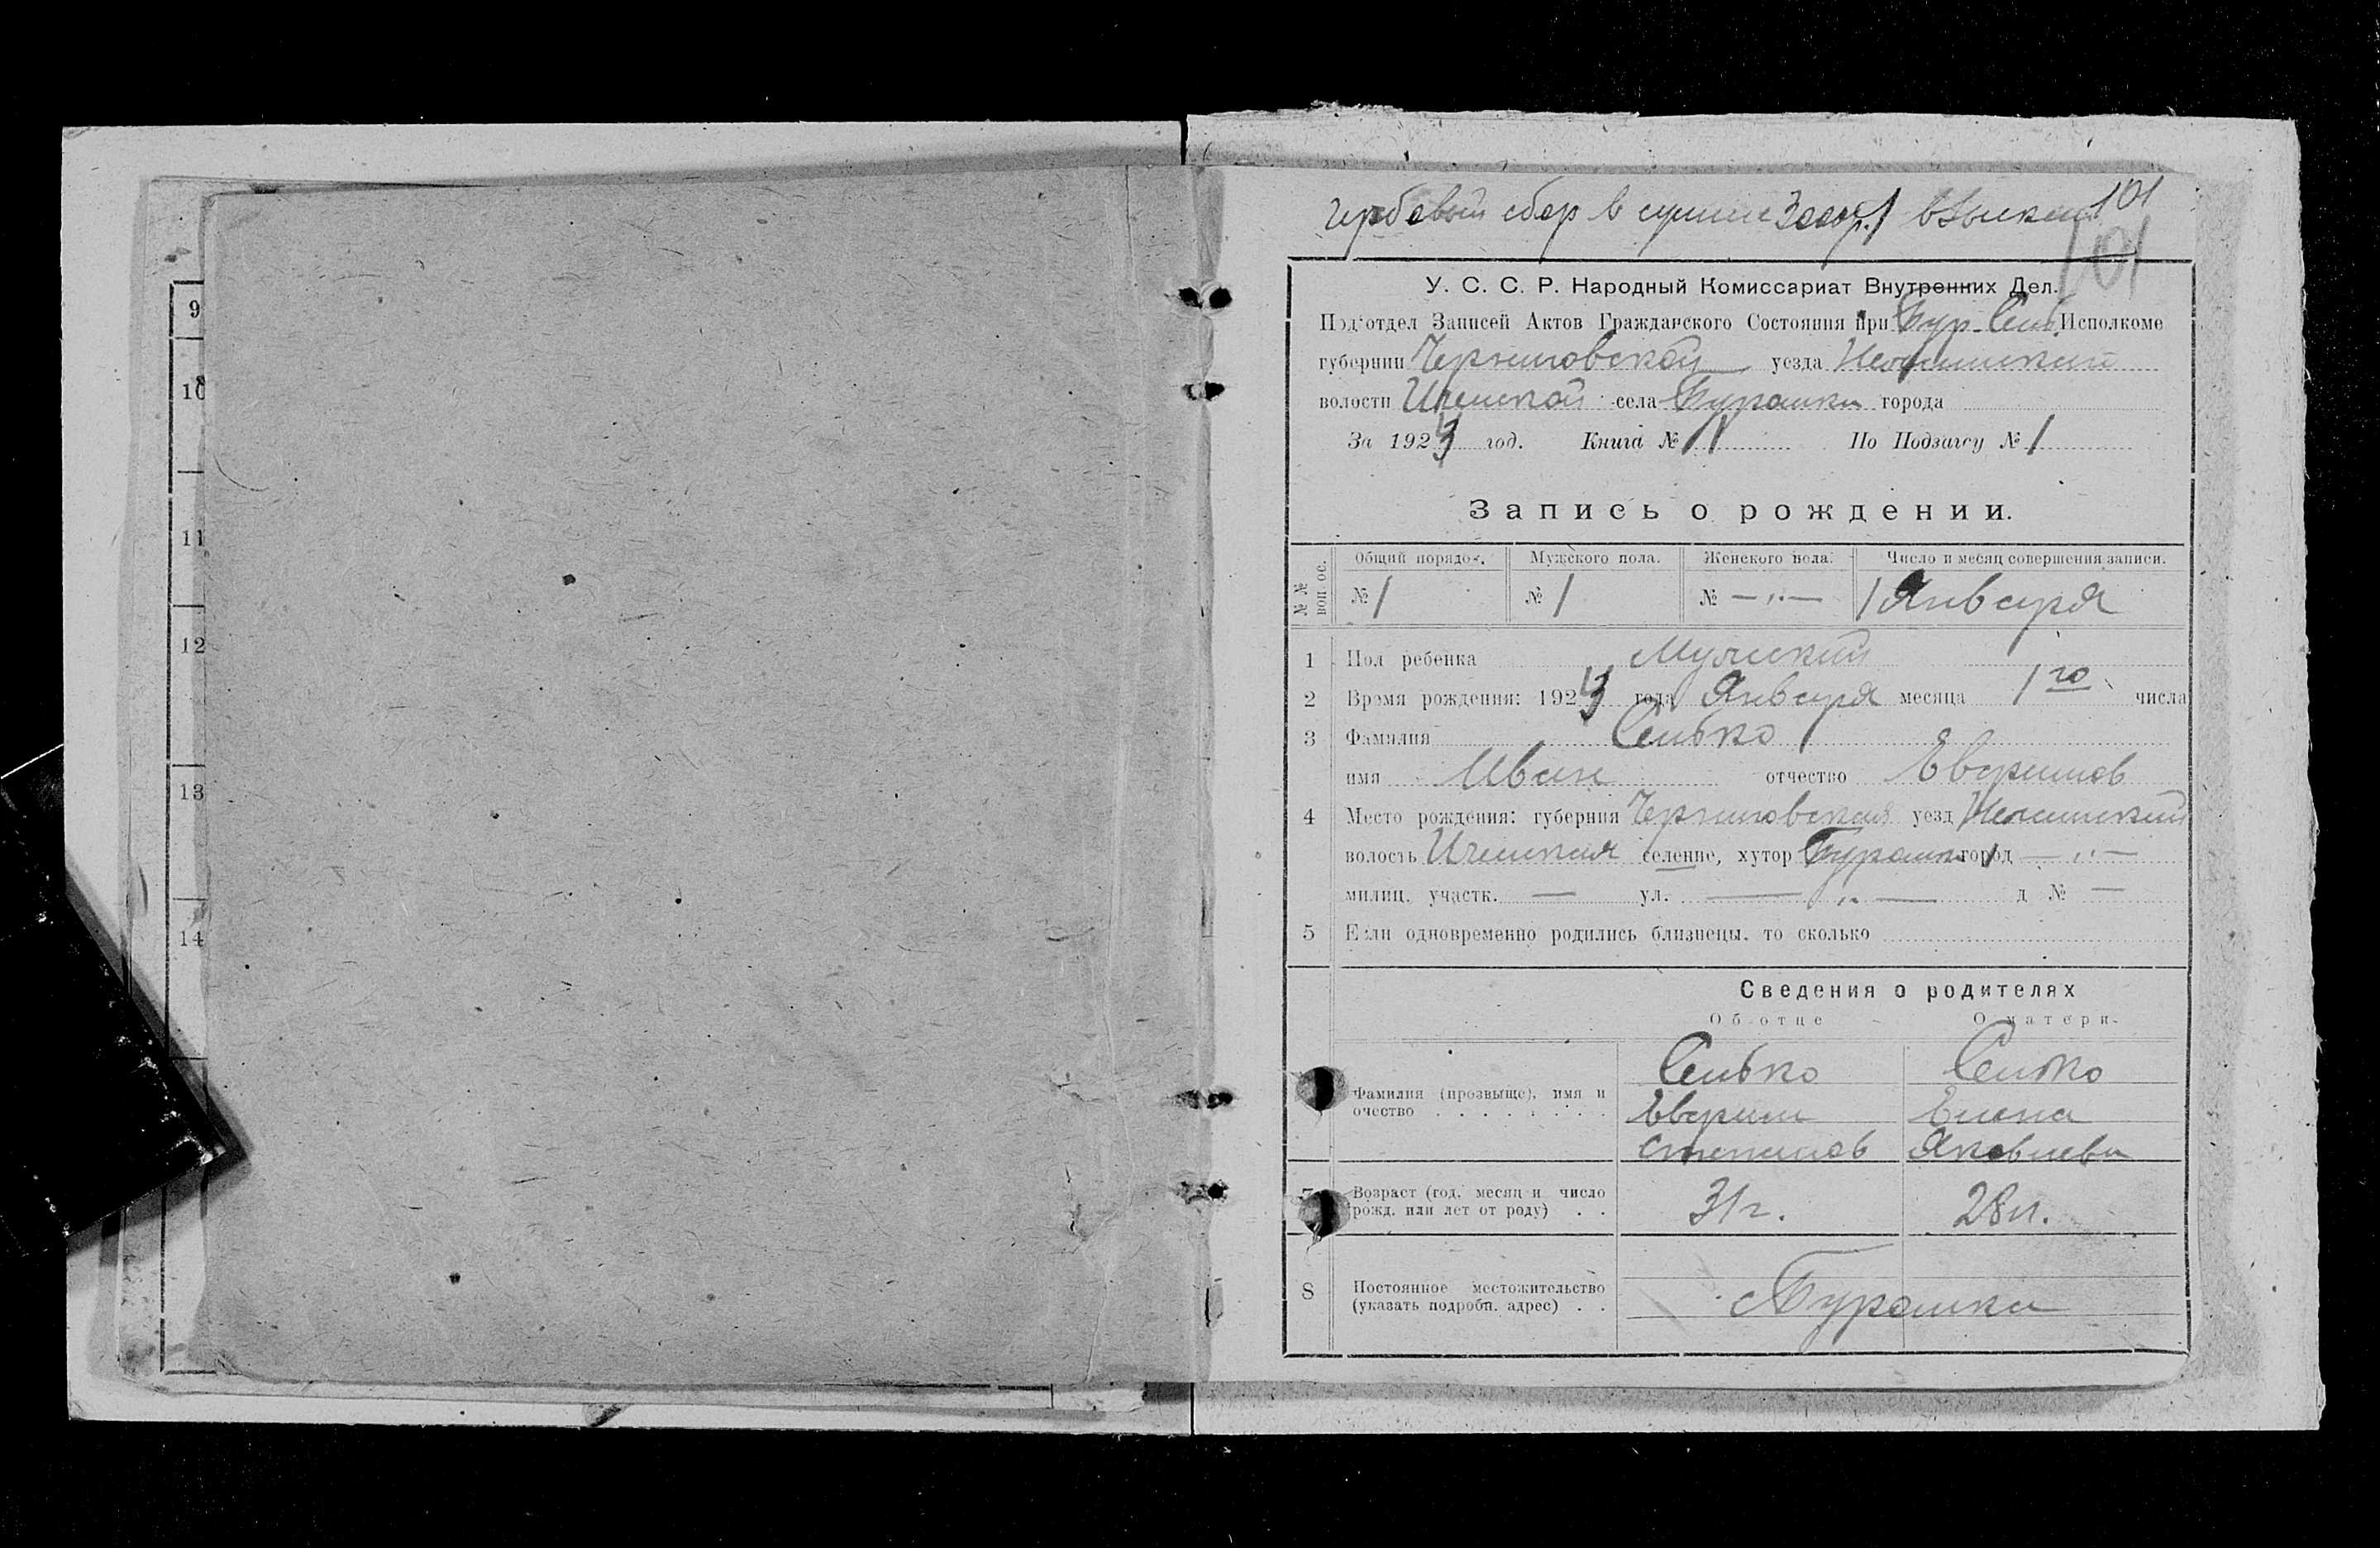 гербовый сбор в сумме 300 р. взыскан 101
101
У. С. С. Р. Народный Комиссариат Внутренних Дел.
Под‘отдел Записей Актов Гражданского Состояния при Бур. Сель Исполкоме
губернии Черниговской уезда Нежинский
волости Иченской села Бурамки города
За 1923 год. Книга № 1 По Подзагсу № 1
Запись о рождении.
№ № воп. ос. Общий порядок. Мужского пола. Женского пола. Число и месяц совершения записи.
№ 1 № 1 № —„— 1 Января
1 Пол ребенка Мужский
2 Время рождения: 1923 года Января месяца 1го числа
3 Фамилия
имя Иван отчество
4 Место рождения: губерния Черниговская уезд Нежинский
волость Иченская селение, хутор Бурамка город —„—
милиц. участк. — ул. — „ — д № —
5 Если одновременно родились близнецы, то сколько
Сведения о родителях
Об отце О матери
Фамилия (прозвище), имя и
очество . . . . . . . .
Степанов Яковлева
7 Возраст (год, месяц и число
рожд. или лет от роду) . . 31 г. 28 л.
8 Постоянное местожительство
(указать подробн. адрес) . . с Бурамка
9
10
11
12
13
14